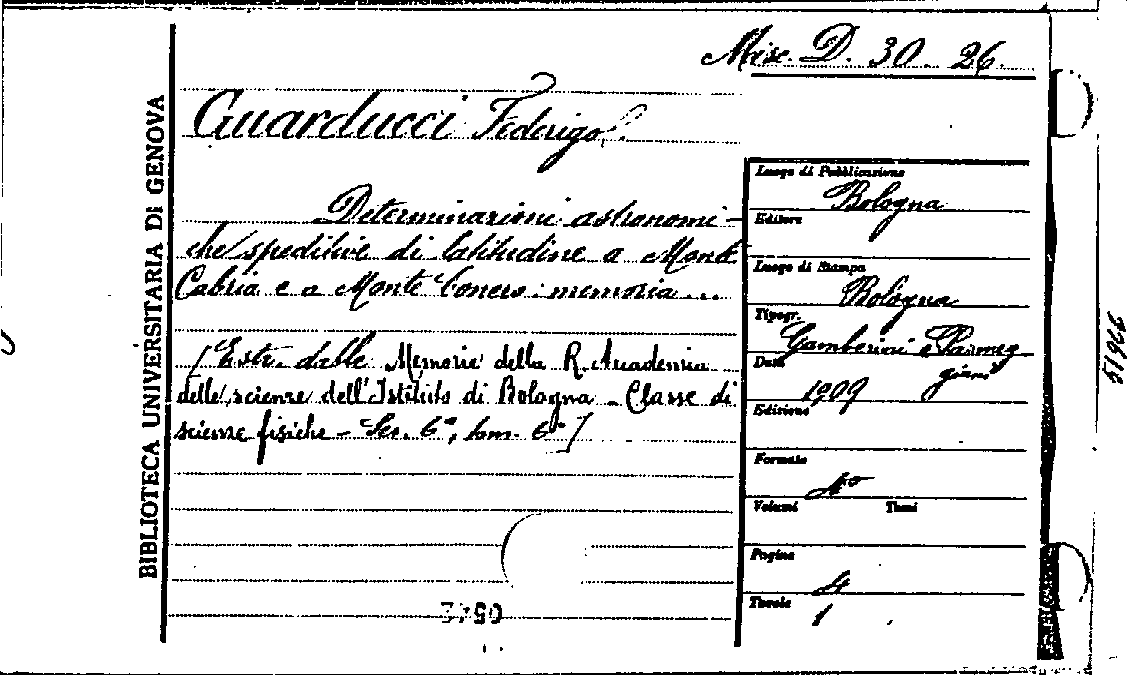 Misc. D. 30. 26.
BIBLIOTECA UNIVERSITARIA DI GENOVA
Guarducci Federigo
Determinazioni astronomi-
che speditive di latitudine a Monte
Cabria e a Monte Conero: memoria...
[Estr. dalle Memorie della R. Accademia
delle scienze dell'Istituto di Bologna - Classe di
scienze fisiche - Ser. 6ª, tom. 6º]
Luogo di Pubblicazione
Bologna
Editore
Luogo di Stampa
Bologna
Tipogr.
Gamberini e Parmeg
giani
Data
1909
Edizione
Formato
4º
Volumi Tomi
Pagine
4
Tavole
1